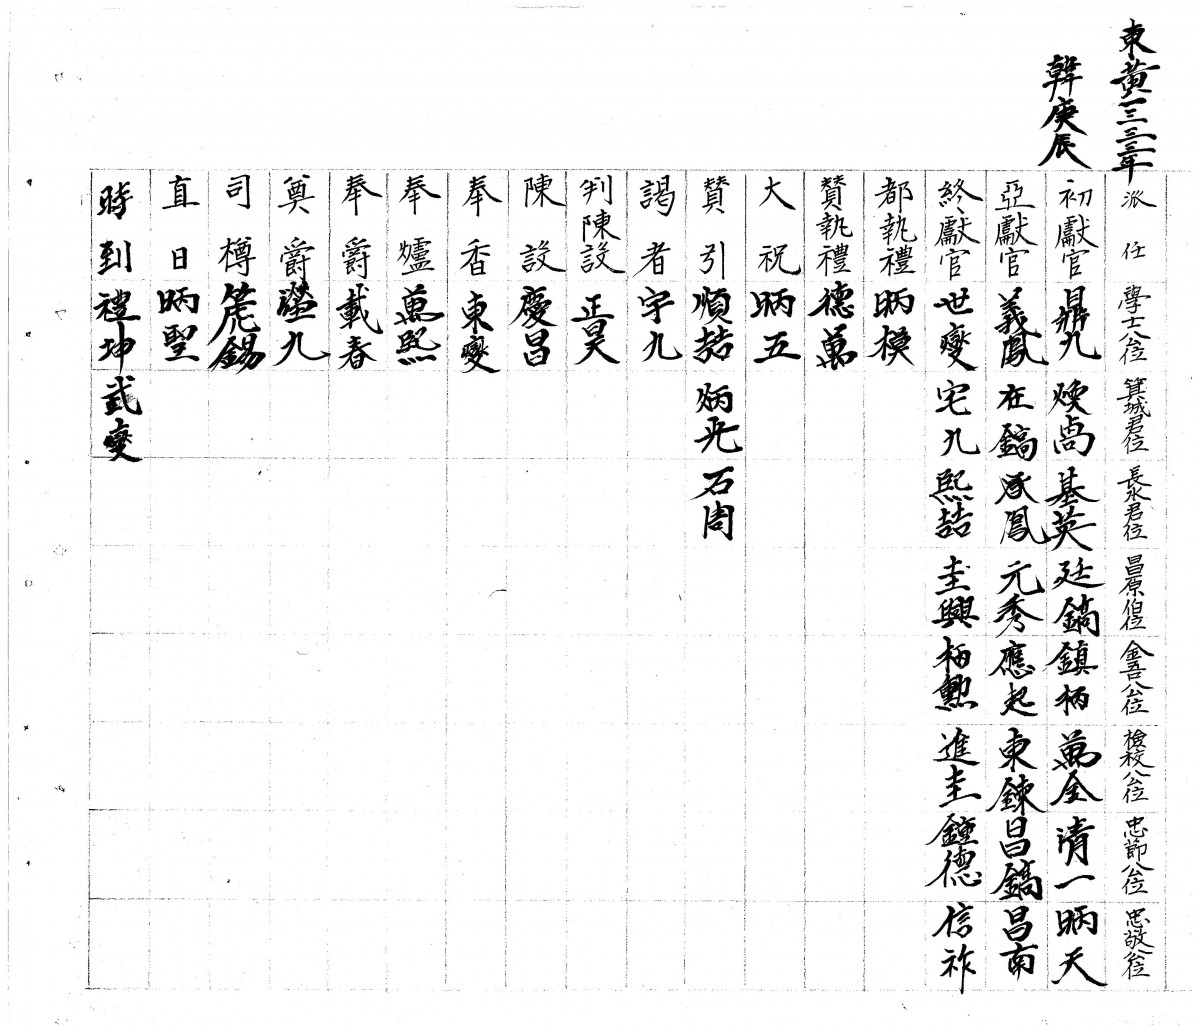 東黃一三三三年
韓庚辰
派任 學士公位 箕城君位 長水君位 昌原伯位 金吾公位 檢校公位 忠節公位 忠敬公位
初獻官 鼎九 煥卨 基英 廷鎬 鎮柄 萬金 清一 昞天
亞獻官 義鳳 在鎬 鳳 元秀 應起 東鍊 昌鎬 昌南
終獻官 世燮 宅九 熙喆 圭興 柄勳 進圭 鍾德 信祚
都執禮 昞模
贊執禮 德萬
大祝 昞五
贊引 順喆 炳光 石周
謁者 宇九
判陳設 正昊
陳設 慶昌
奉香 東燮
奉爐 萬熙
奉爵 載春
奠爵 瀅九
司樽 箎錫
直日 昞聖
時到 禮坤 武燮